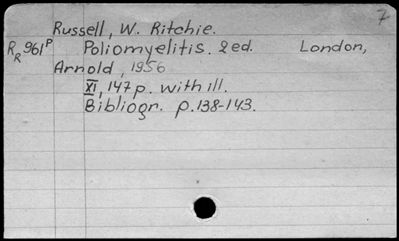 7
Russell, W. Ritchie.
R_R 961^P Poliomyelitis. 2ed. London,
Arnold, 1956
XI, 147 p. with ill.
Bibliogr. p. 138-143.